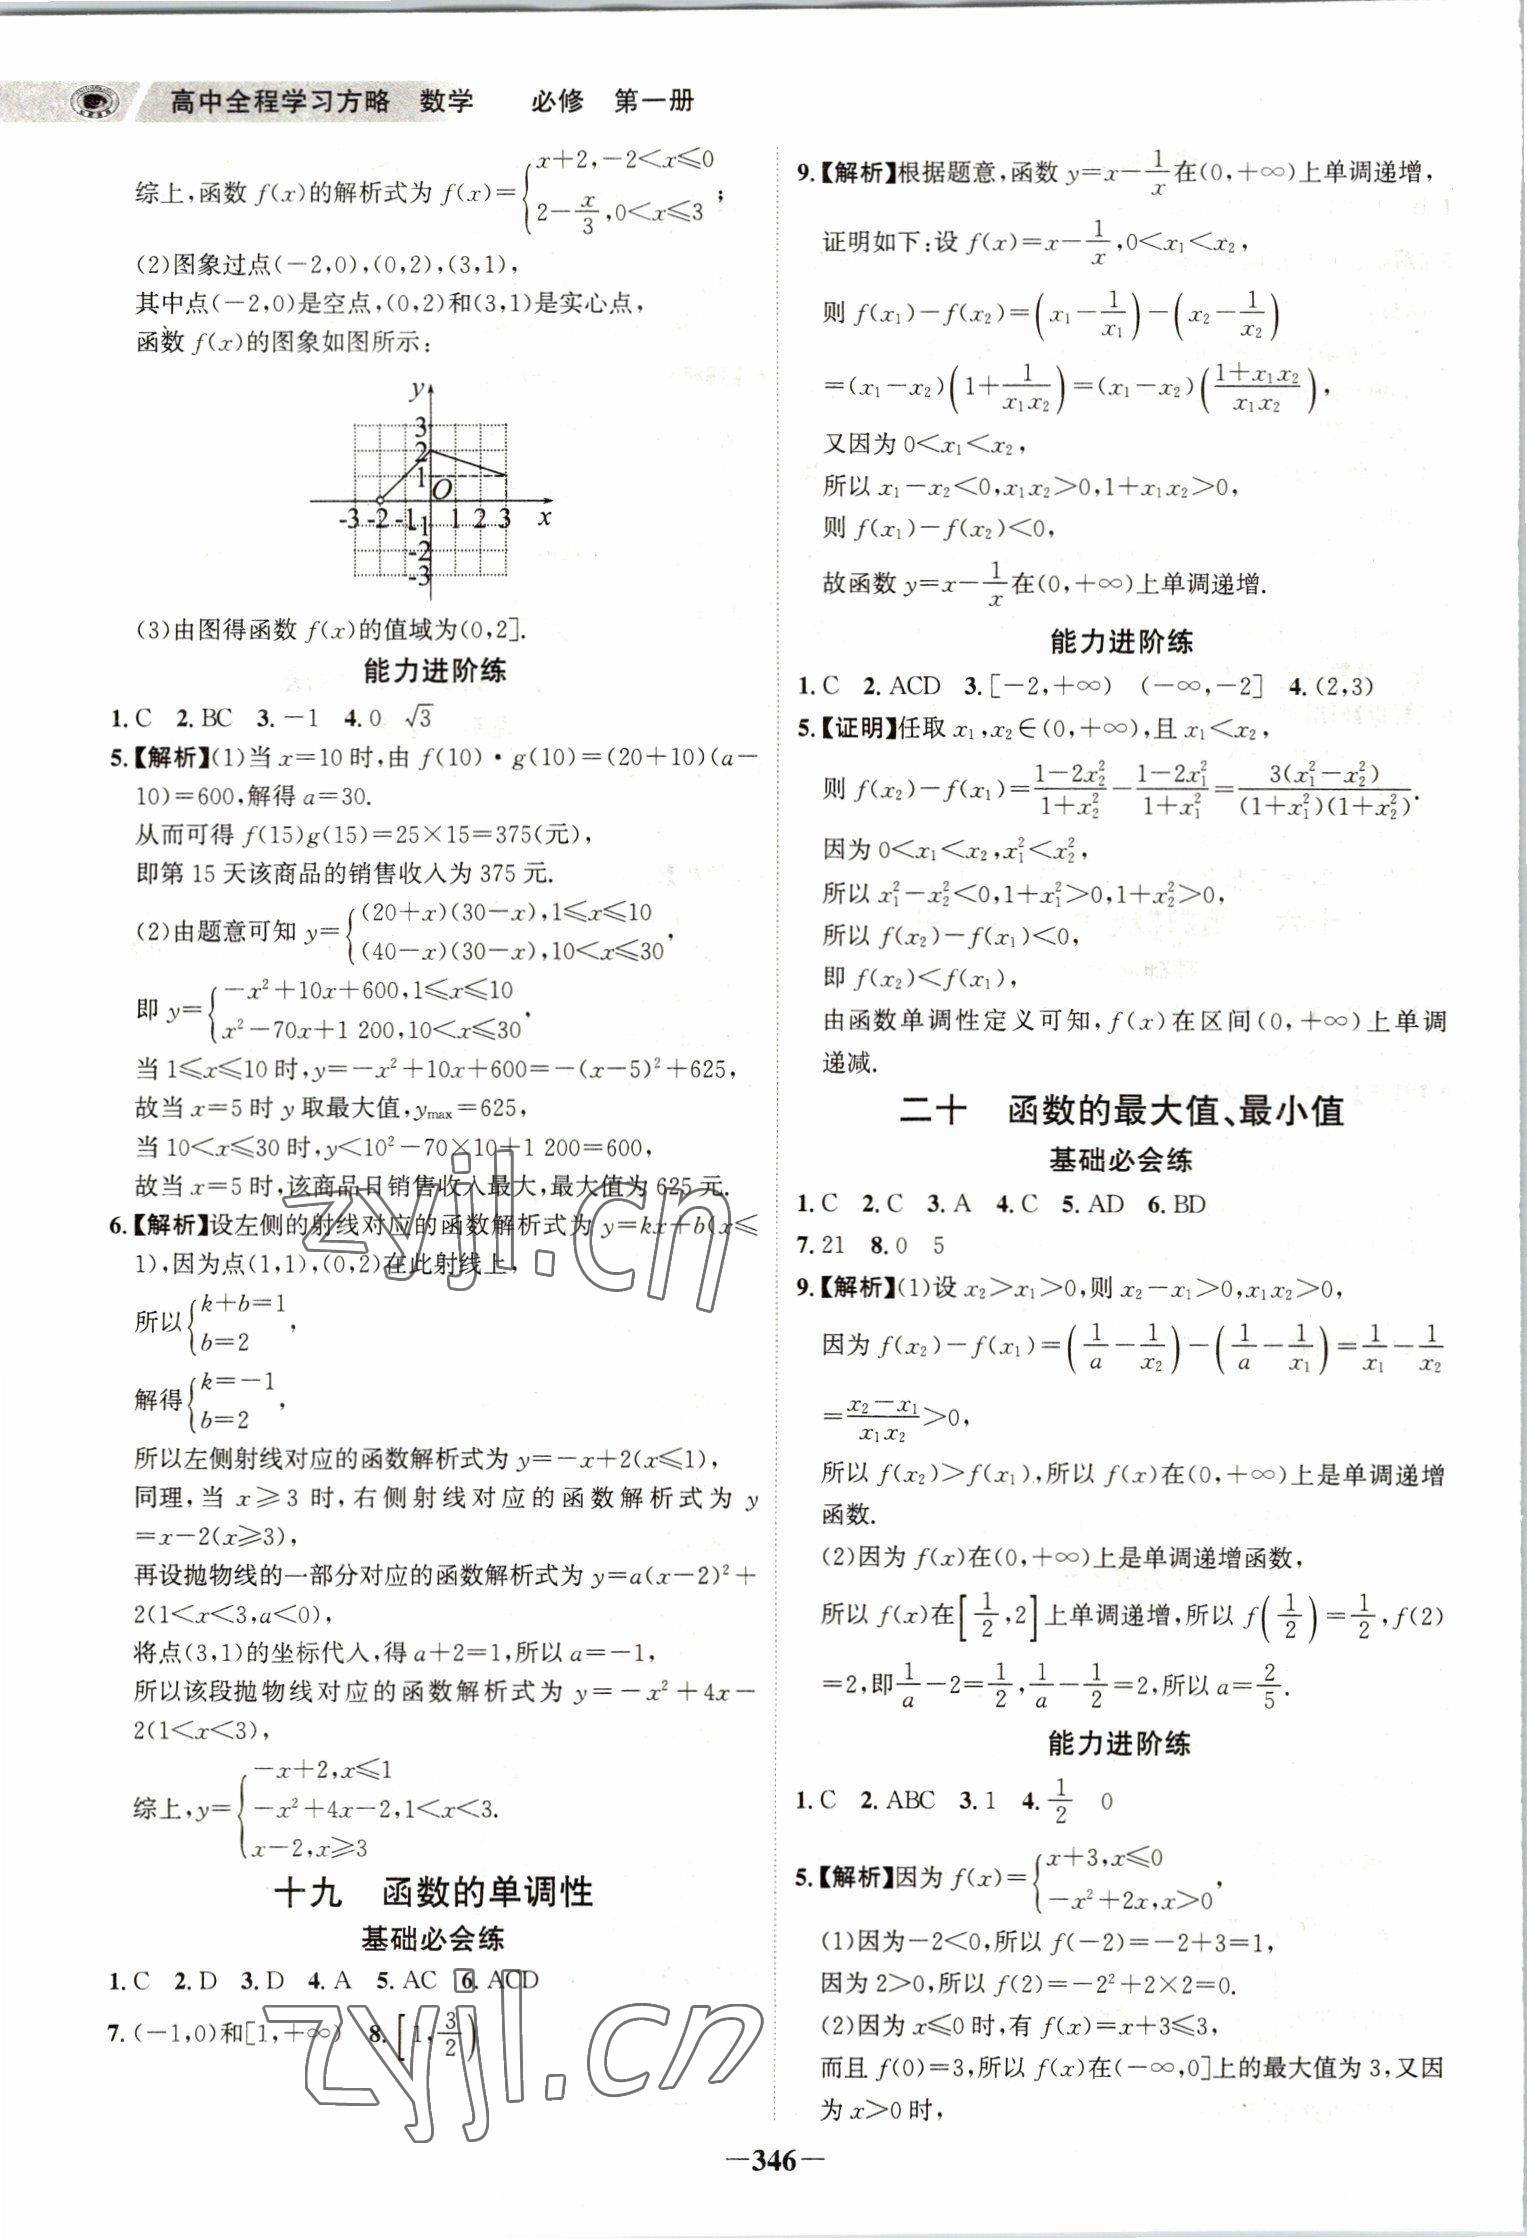 高中全程学习方略 数学 必修 第一册
综上,函数 f(x)的解析式为 f(x)={x+2,-2<x≤0
2-x/3,0<x≤3;
(2)图象过点(-2,0),(0,2),(3,1),
其中点(-2,0)是空点,(0,2)和(3,1)是实心点,
函数 f(x)的图象如图所示:
y
3
2
1
O
-3 -2 -1 1 2 3 x
-1
-2
-3
(3)由图得函数 f(x)的值域为(0,2].
能力进阶练
1. C 2. BC 3. -1 4. 0 √3
5.【解析】(1)当 x=10 时,由 f(10)·g(10)=(20+10)(a-
10)=600,解得 a=30.
从而可得 f(15)g(15)=25×15=375(元),
即第 15 天该商品的销售收入为 375 元.
(2)由题意可知 y={(20+x)(30-x),1≤x≤10
(40-x)(30-x),10<x≤30,
即 y={-x²+10x+600,1≤x≤10
x²-70x+1 200,10<x≤30,
当 1≤x≤10 时,y=-x²+10x+600=-(x-5)²+625,
故当 x=5 时 y 取最大值,ymax=625,
当 10<x≤30 时,y<10²-70×10+1 200=600,
故当 x=5 时,该商品日销售收入最大,最大值为 625 元.
6.【解析】设左侧的射线对应的函数解析式为 y=kx+b(x≤
1),因为点(1,1),(0,2)在此射线上,
所以{k+b=1
b=2,
解得{k=-1
b=2,
所以左侧射线对应的函数解析式为 y=-x+2(x≤1),
同理,当 x≥3 时,右侧射线对应的函数解析式为 y
=x-2(x≥3),
再设抛物线的一部分对应的函数解析式为 y=a(x-2)²+
2(1<x<3,a<0),
将点(3,1)的坐标代入,得 a+2=1,所以 a=-1,
所以该段抛物线对应的函数解析式为 y=-x²+4x-
2(1<x<3),
综上,y={-x+2,x≤1
-x²+4x-2,1<x<3.
x-2,x≥3
十九 函数的单调性
基础必会练
1. C 2. D 3. D 4. A 5. AC 6. ACD
7. (-1,0)和[1,+∞) 8. [1,3/2)
9.【解析】根据题意,函数 y=x-1/x在(0,+∞)上单调递增,
证明如下:设 f(x)=x-1/x,0<x₁<x₂,
则 f(x₁)-f(x₂)=(x₁-1/x₁)-(x₂-1/x₂)
=(x₁-x₂)(1+1/x₁x₂)=(x₁-x₂)((1+x₁x₂)/x₁x₂),
又因为 0<x₁<x₂,
所以 x₁-x₂<0,x₁x₂>0,1+x₁x₂>0,
则 f(x₁)-f(x₂)<0,
故函数 y=x-1/x在(0,+∞)上单调递增.
能力进阶练
1. C 2. ACD 3. [-2,+∞) (-∞,-2] 4. (2,3)
5.【证明】任取 x₁,x₂∈(0,+∞),且 x₁<x₂,
则 f(x₂)-f(x₁)=(1-2x₂²)/(1+x₂²)-(1-2x₁²)/(1+x₁²)=3(x₁²-x₂²)/(1+x₁²)(1+x₂²).
因为 0<x₁<x₂,x₁²<x₂²,
所以 x₁²-x₂²<0,1+x₁²>0,1+x₂²>0,
所以 f(x₂)-f(x₁)<0,
即 f(x₂)<f(x₁),
由函数单调性定义可知,f(x)在区间(0,+∞)上单调
递减.
二十 函数的最大值、最小值
基础必会练
1. C 2. C 3. A 4. C 5. AD 6. BD
7. 21 8. 0 5
9.【解析】(1)设 x₂>x₁>0,则 x₂-x₁>0,x₁x₂>0,
因为 f(x₂)-f(x₁)=(1/a-1/x₂)-(1/a-1/x₁)=1/x₁-1/x₂
=(x₂-x₁)/x₁x₂>0,
所以 f(x₂)>f(x₁),所以 f(x)在(0,+∞)上是单调递增
函数.
(2)因为 f(x)在(0,+∞)上是单调递增函数,
所以 f(x)在[1/2,2]上单调递增,所以 f(1/2)=1/2,f(2)
=2,即1/a-2=1/2,1/a-1/2=2,所以 a=2/5.
能力进阶练
1. C 2. ABC 3. 1 4. 1/2 0
5.【解析】因为 f(x)={x+3,x≤0
-x²+2x,x>0,
(1)因为-2<0,所以 f(-2)=-2+3=1,
因为 2>0,所以 f(2)=-2²+2×2=0.
(2)因为 x≤0 时,有 f(x)=x+3≤3,
而且 f(0)=3,所以 f(x)在(-∞,0]上的最大值为 3,又因
为 x>0 时,
-346-
zyjl.cn
zyjl.cn